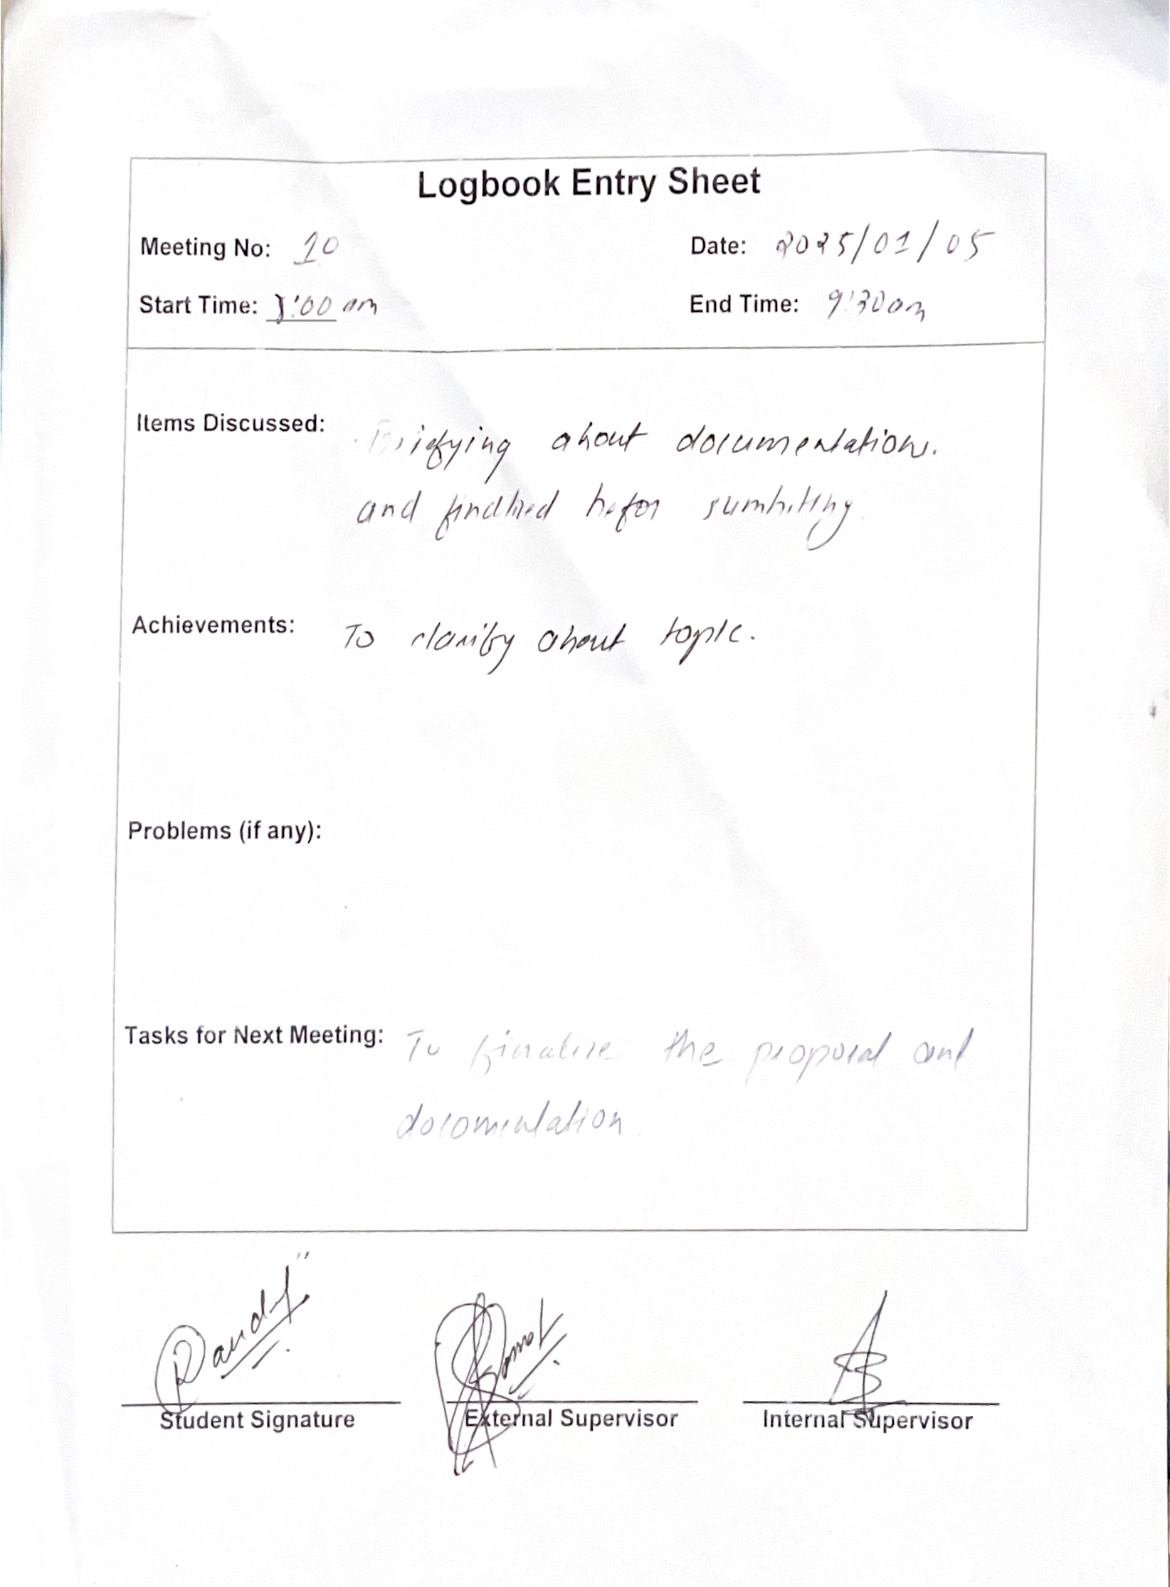 Logbook Entry Sheet
Meeting No: 10 Date: 2025/01/05
Start Time: 8:00 am End Time: 9:30am
Items Discussed: Briefying about documentation.
and finalized befor sumbiting
Achievements: To clarify about topic.
Problems (if any):
Tasks for Next Meeting: To finalise the proposal and
documentation
Student Signature External Supervisor Internal Supervisor